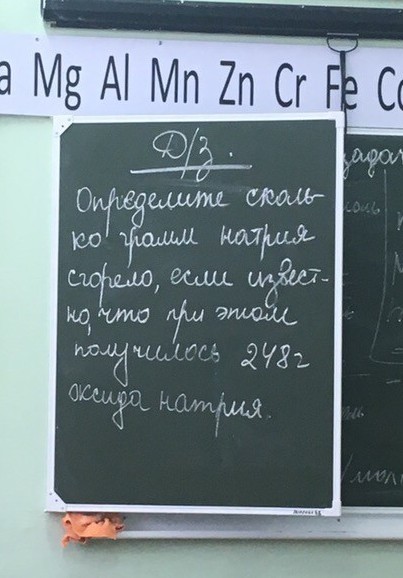 a Mg Al Mn Zn Cr Fe Co
Д/З.
Определите сколь-
ко грамм натрия
сгорело, если извест-
но, что при этом
получилось 248г
оксида натрия.
задач